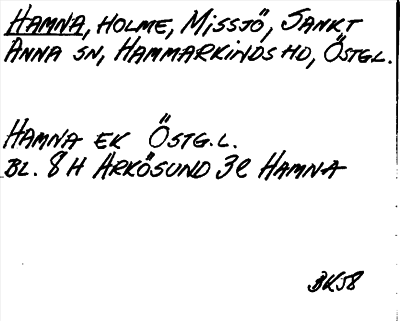 HAMNA, HOLME, MISSJÖ, SANKT
ANNA SN, HAMMARKINDS HD, ÖSTGL.
HAMNA EK ÖSTG.L.
BL. 8H ARKÖSUND 3e HAMNA
BK58